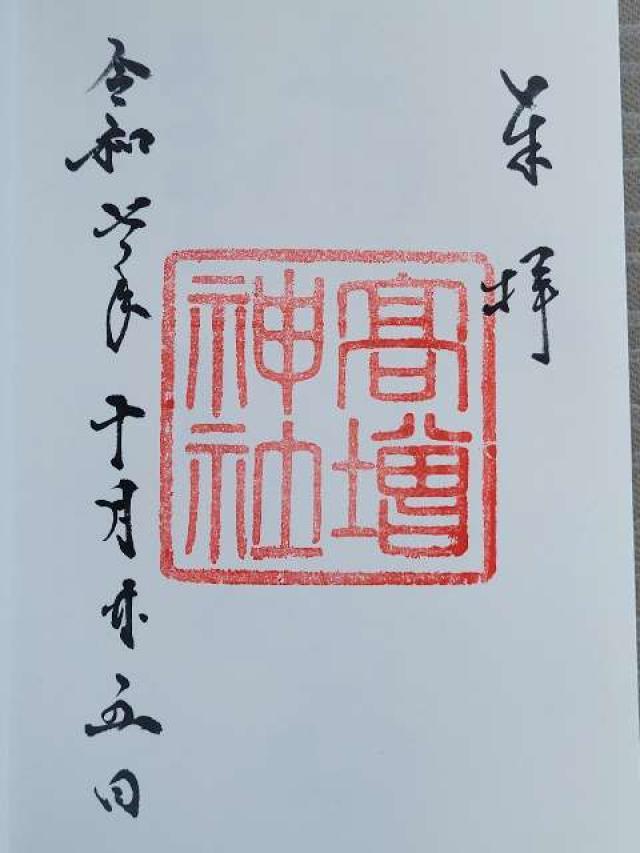 奉拝
高増
神社
令和年十月廿五日